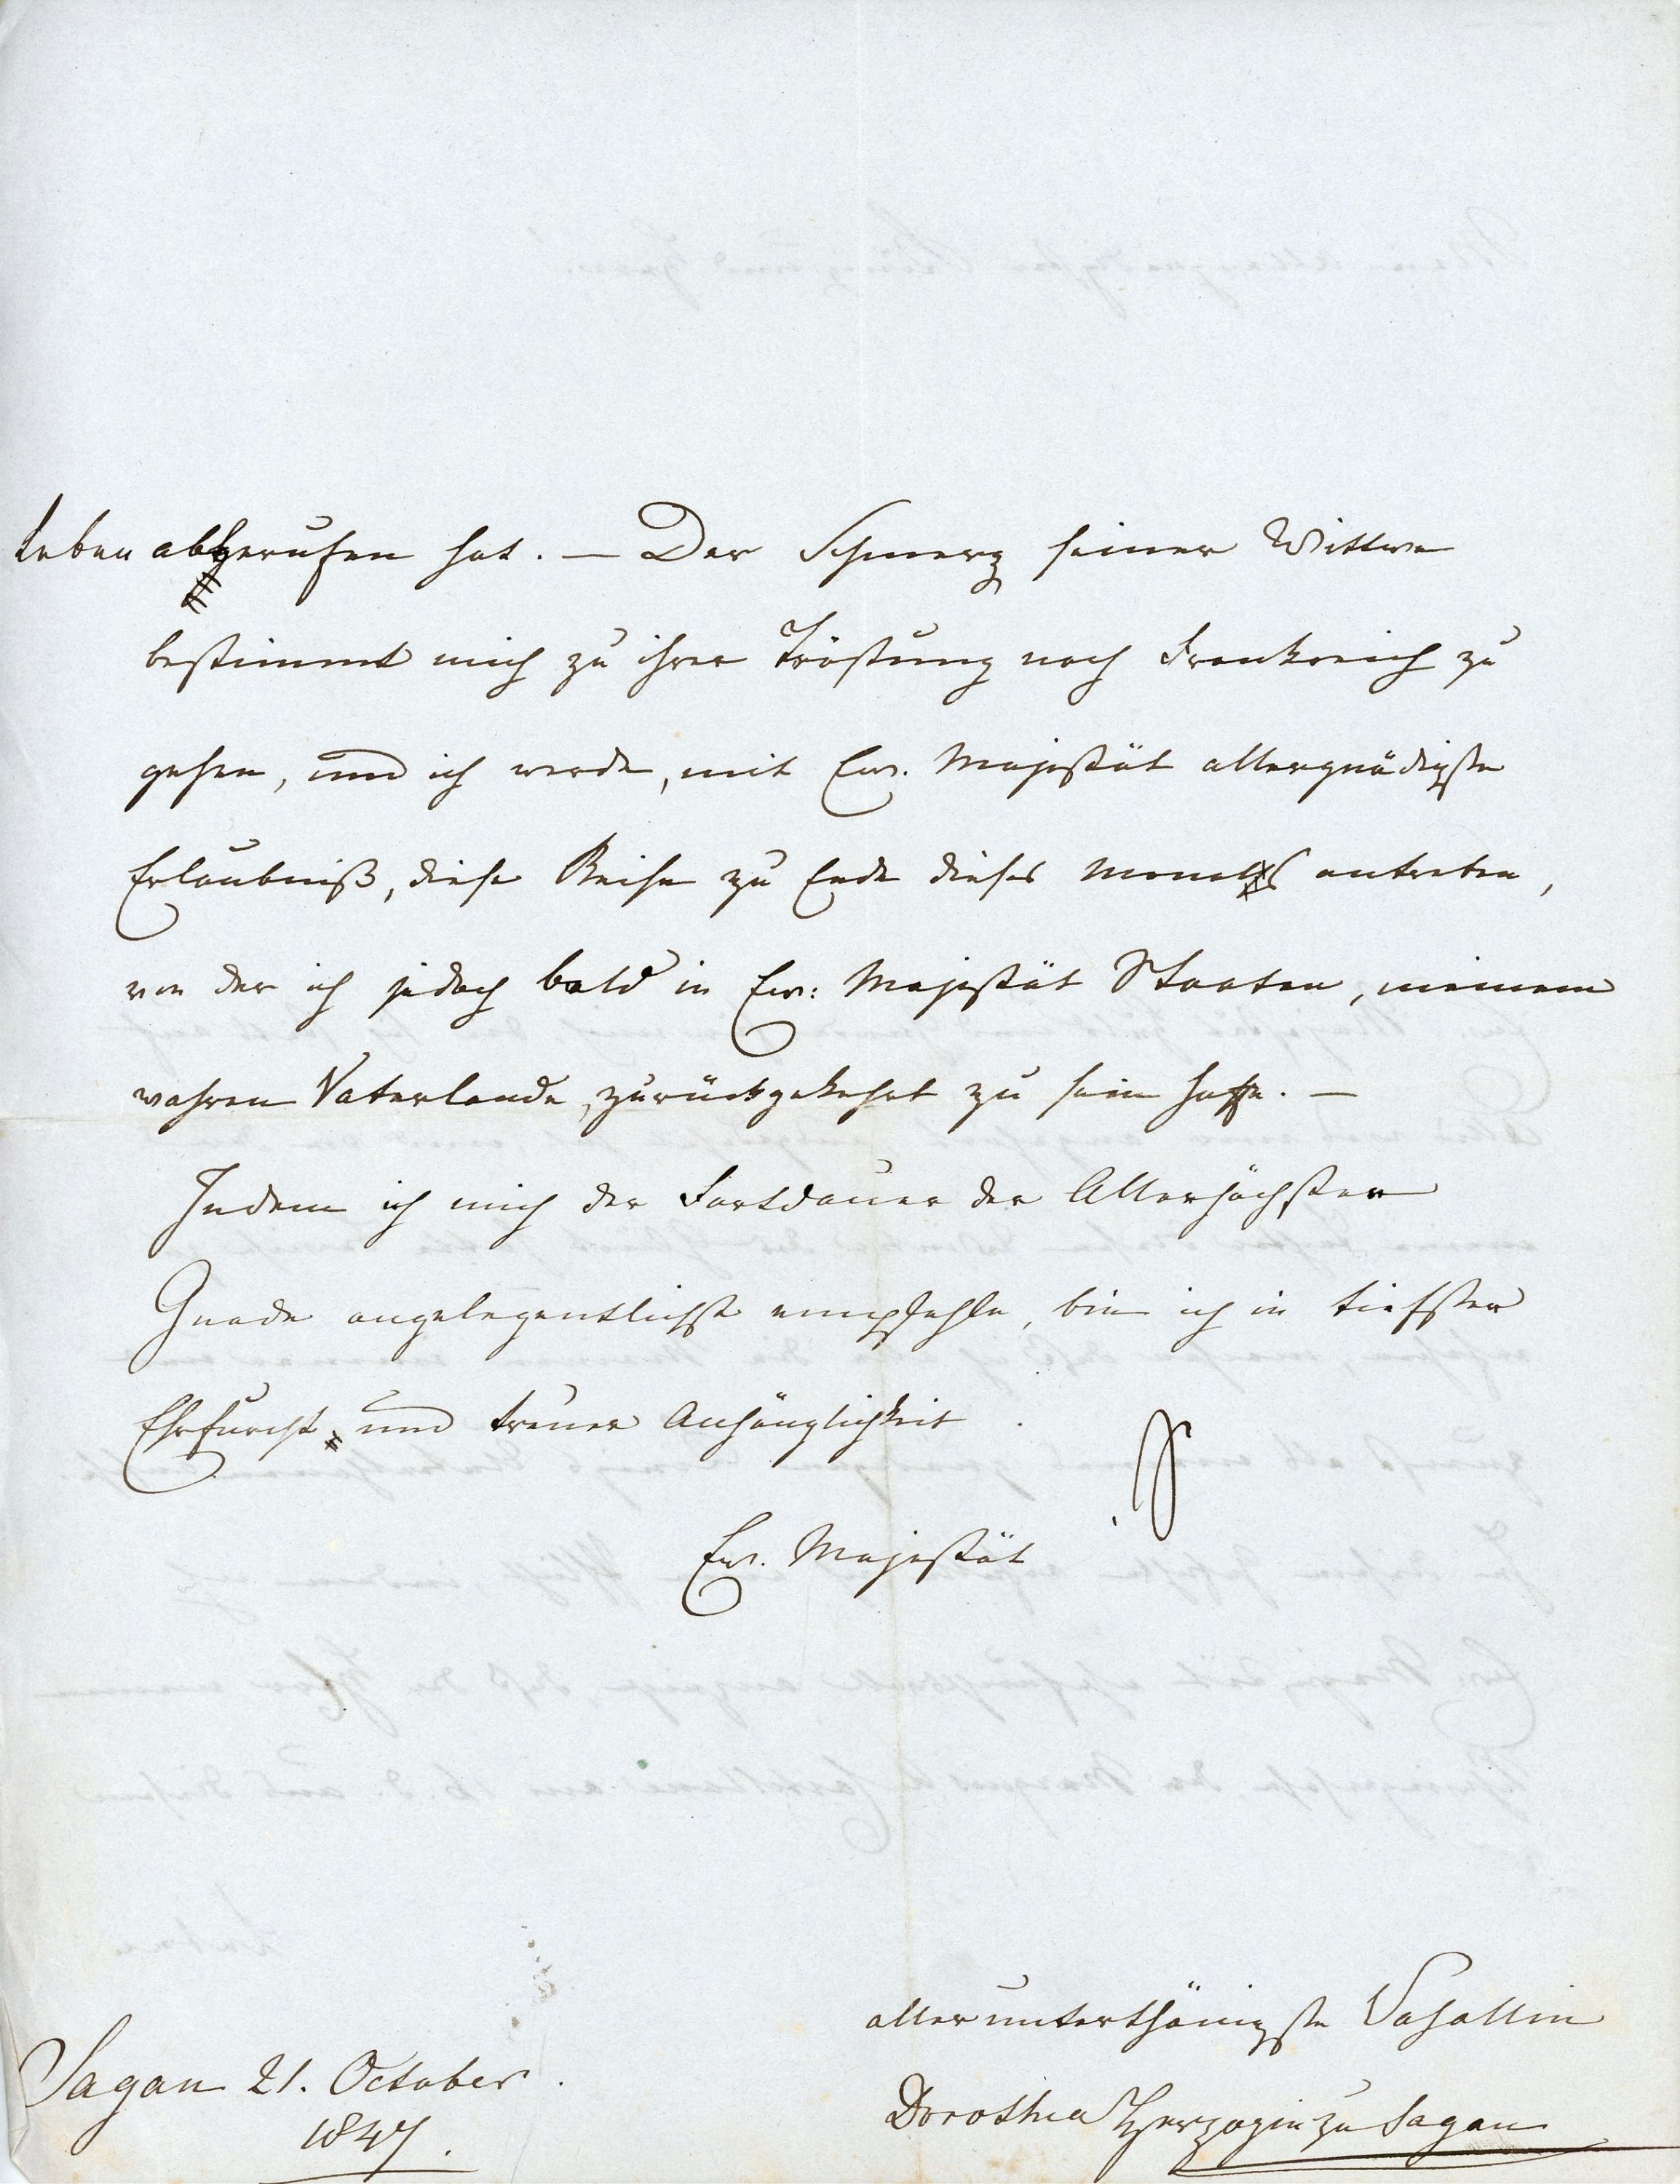 Leben abgerufen hat. — Der Schmerz seiner Wittwe
bestimmt mich zu ihrer Tröstung nach Frankreich zu
gehen, und ich werde, mit Ew. Majestät allergnädigste
Erlaubniß, diese Reise zu Ende dieses Monats antreten,
von der ich jedoch bald in Ew: Majestät Staaten, meinem
wahren Vaterlande, zurückgekehrt zu sein hoffe. —
Indem ich mich der Fortdauer der Allerhöchsten
Gnade angelegentlichst empfehle, bin ich in tiefster
Ehrfurcht und treuer Anhänglichkeit
Ew. Majestät
allerunterthänigste Vasallin
Dorothea Herzogin zu Sagan
Sagan 21. October.
1847.